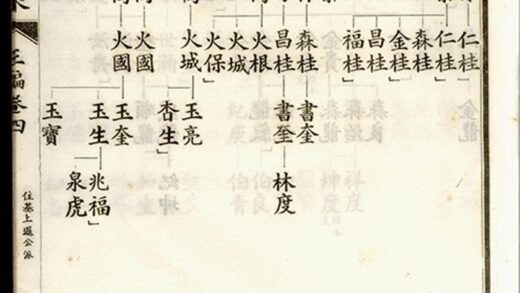 仁桂
仁桂」
森桂
金桂
昌桂
福桂」
森桂
昌桂
火根
火城
火保」
火城
火國
火國
書奎
書奎
玉亮
杏生」
玉奎
玉生
玉寶
林度
兆福」
泉虎
卷四
住墓上遲公派